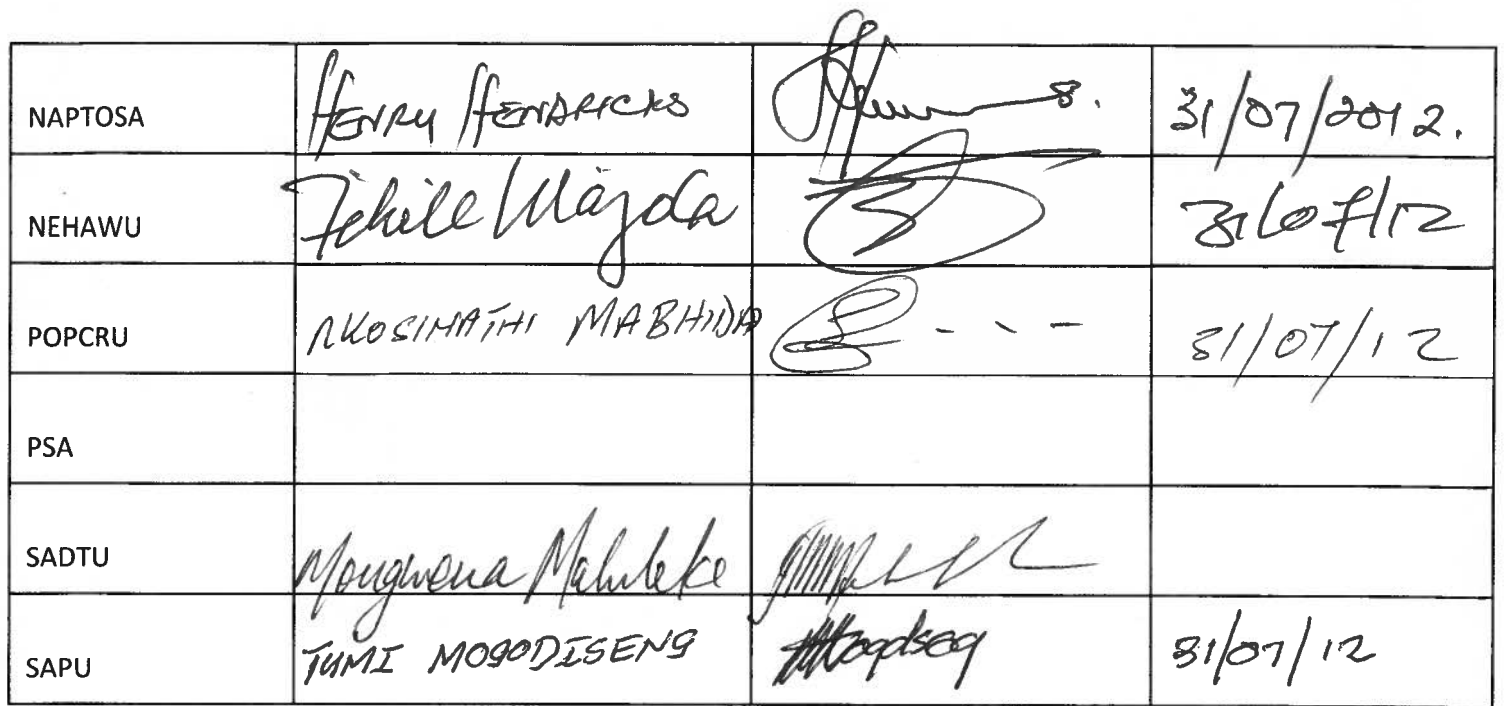 NAPTOSA HENRY HENDRICKS 31/07/2012.
NEHAWU Fikile Majola 31/07/12
POPCRU NKOSINATHI MABHIDA 31/07/12
PSA
SADTU Mongwena Maluleke
SAPU TUMI MOGODISENG 31/07/12